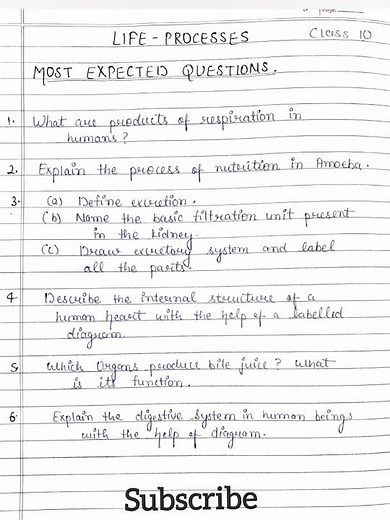 LIFE - PROCESSES Class 10
MOST EXPECTED QUESTIONS.
1. What are products of respiration in
humans?
2. Explain the process of nutrition in Amoeba.
3. (a) Define excretion.
(b) Name the basic filtration unit present
in the kidney.
(c) Draw excretory system and label
all the parts.
4 Describe the internal structure of a
human heart with the help of a labelled
diagram.
5 Which Organs produce bile juice? What
is its function.
6 Explain the digestive system in human beings
with the help of diagram.
Subscribe